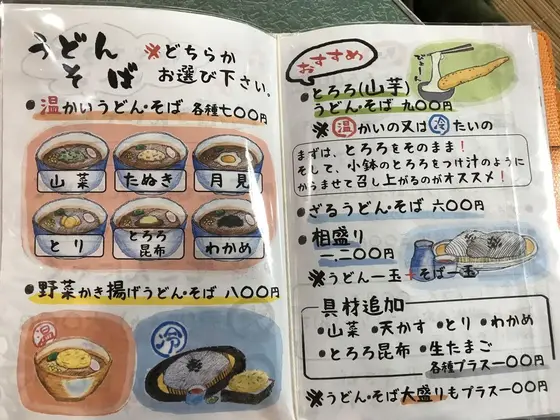 うどん
そば
※どちらか
お選び下さい。
・温かいうどん・そば 各種七〇〇円
山菜
たぬき
月見
とり
とろろ
昆布
わかめ
・野菜かき揚げうどん・そば 八〇〇円
温
冷
おすすめ
びよ～ん
・とろろ(山芋)
うどん・そば 九〇〇円
※温かいの又は冷たいの
まずは、とろろをそのまま!
そして、小鉢のとろろをつけ汁のように
からませて召し上がるのがオススメ!
・ざるうどん・そば 六〇〇円
・相盛り
一、二〇〇円
※うどん一玉+そば一玉
具材追加
・山菜 ・天かす ・とり ・わかめ
・とろろ昆布 ・生たまご
各種プラス一〇〇円
※うどん・そば大盛りもプラス一〇〇円